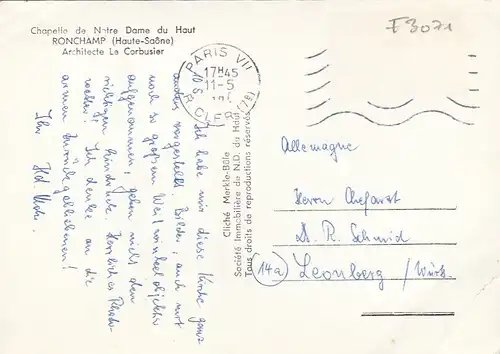 Chapelle de Notre Dame du Haut
RONCHAMP (Haute-Saône)
Architecte Le Corbusier
F3071
PARIS VII
17H45
11-5
R. CLER (7E)
10.5.
Ich habe mir diese Kirche ganz
anders vorgestellt. Bilder, auch mit
noch so großem Weitwinkelobjektiv
aufgenommen, geben nicht den
richtigen Eindruck. Herrliches
wetter! Ich denke an die
armen Zurückgebliebenen!
Ihr
Cliché Merkle-Bâle
Société Immobilière de N.D. du Haut
Tous droits de reproductions réservés
Allemagne
Herrn Chefarzt
Dr. R. Schmid
(14a) Leonberg / Württ.